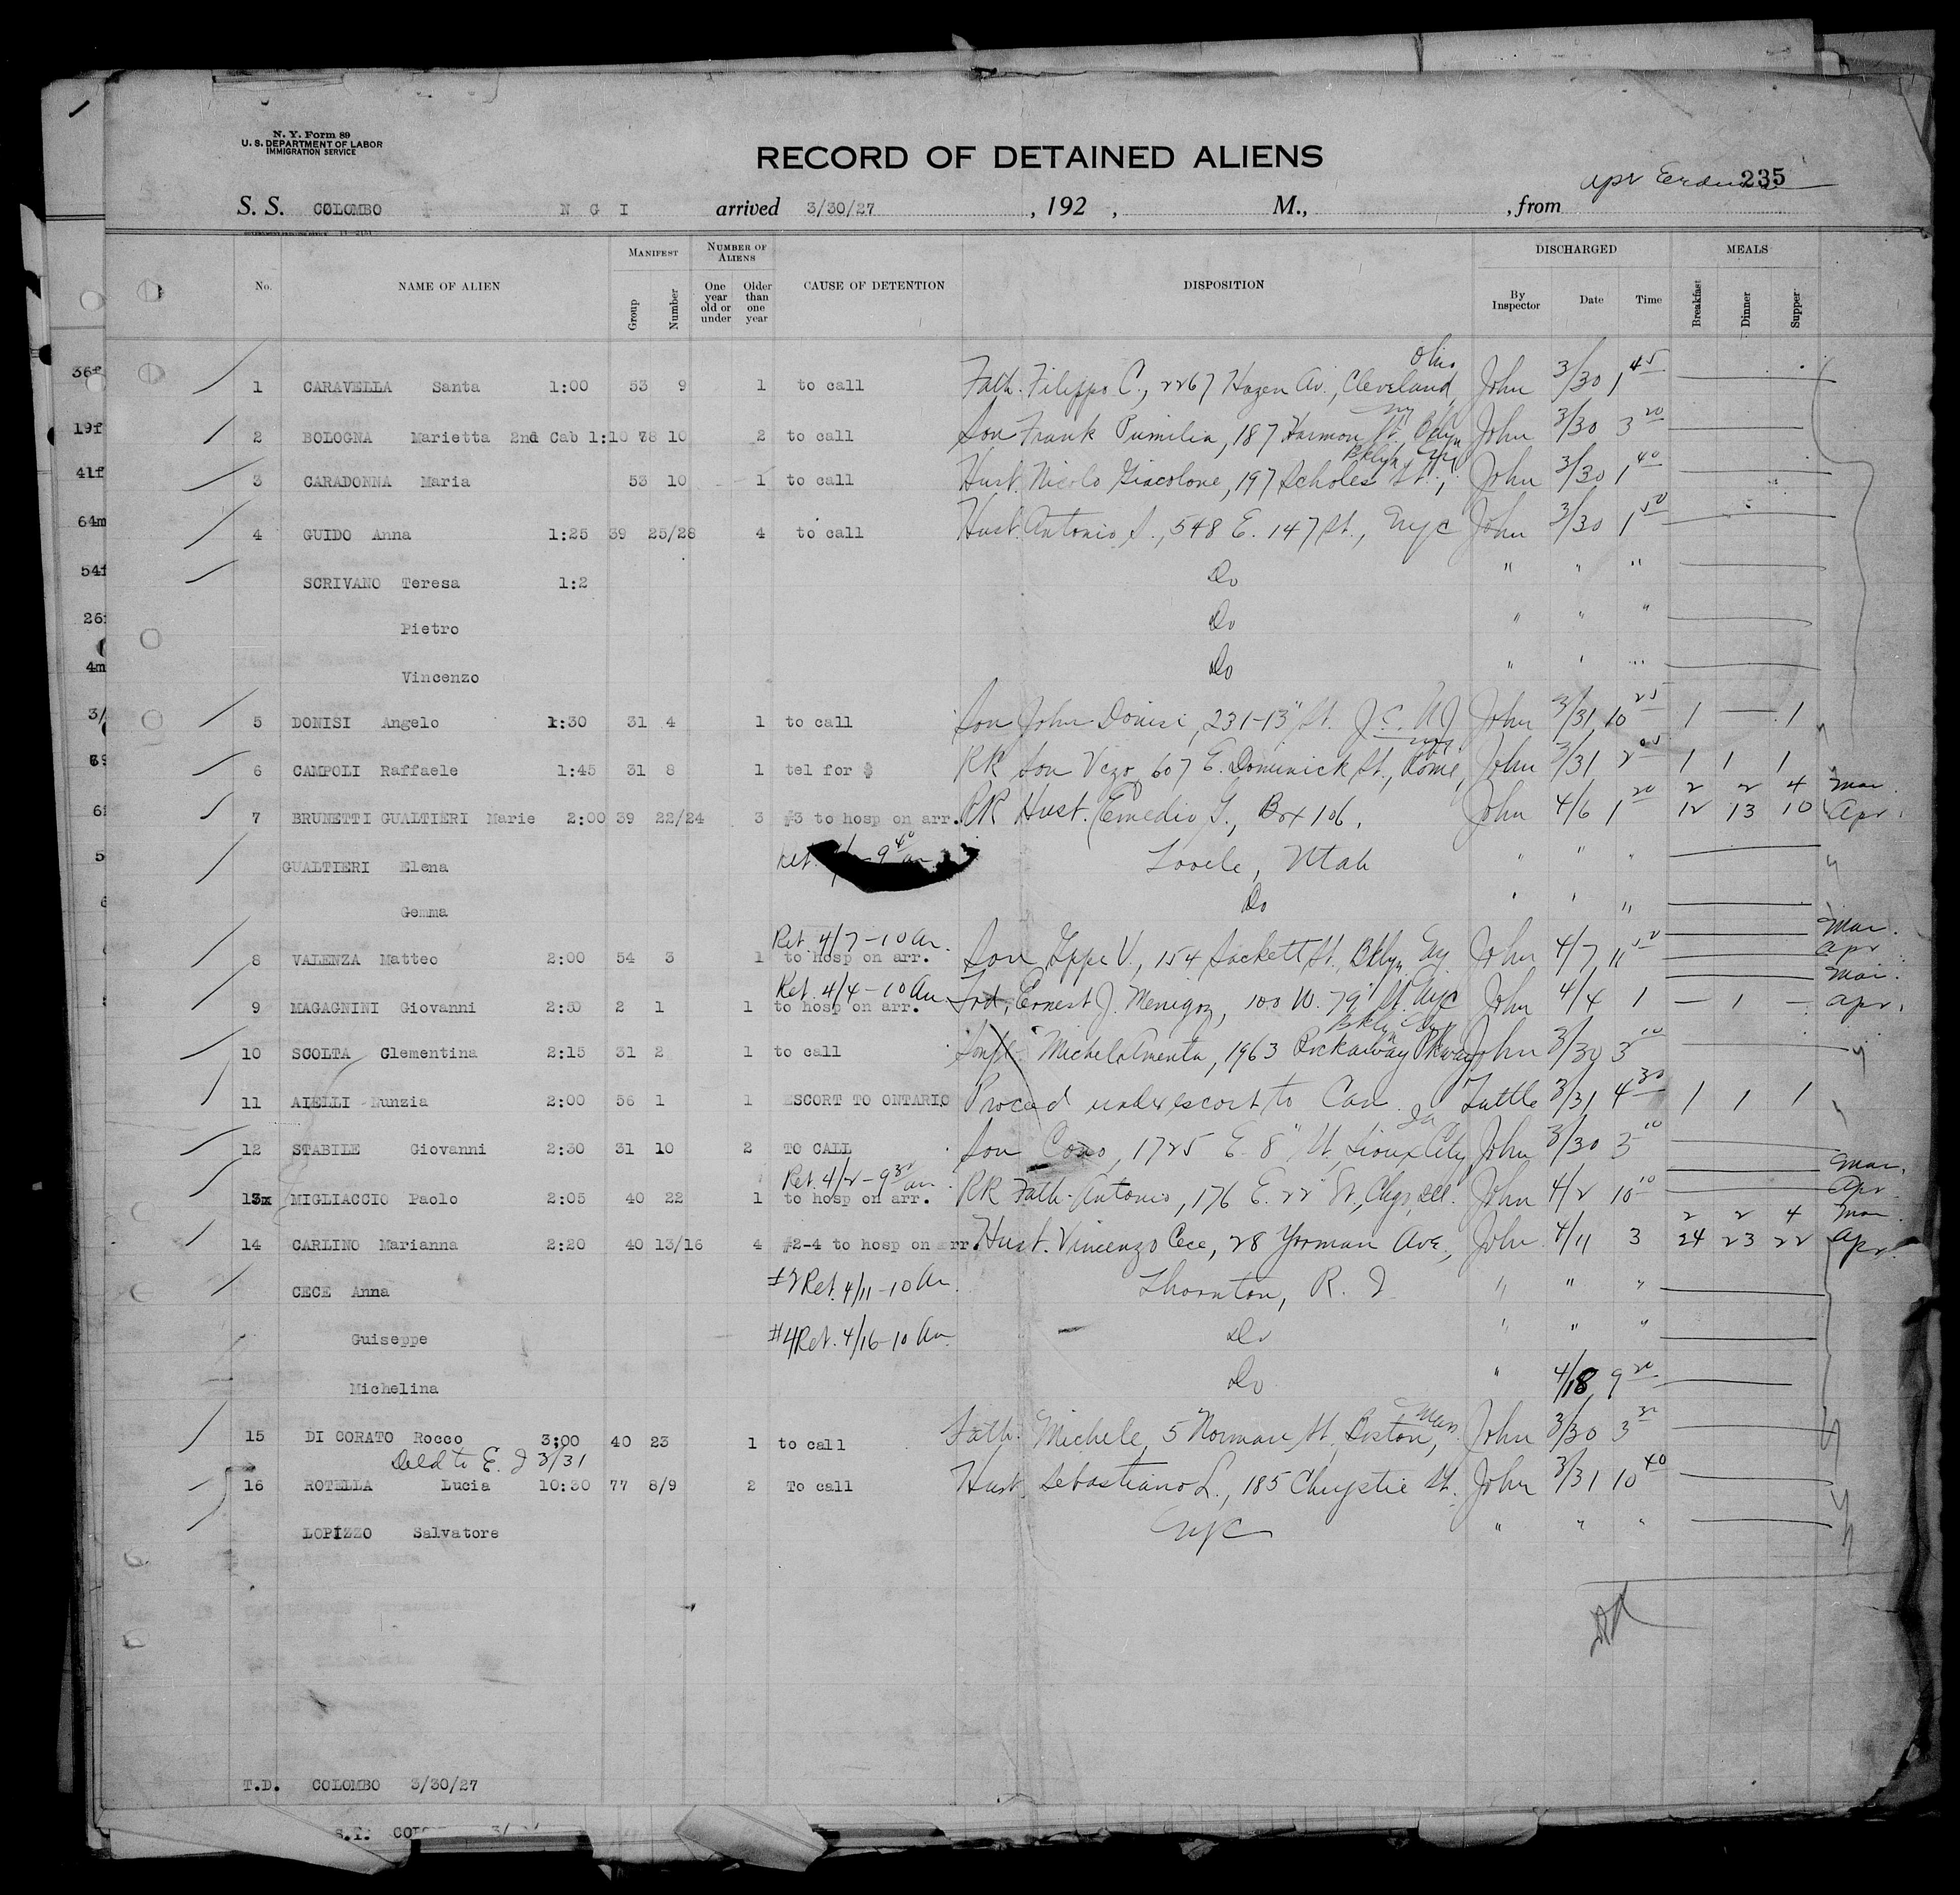 N. Y. Form 89
U. S. DEPARTMENT OF LABOR
IMMIGRATION SERVICE
RECORD OF DETAINED ALIENS
235
S. S. COLOMBO N G I arrived 3/30/27, 192 , M., , from
No. NAME OF ALIEN MANIFEST Group Number NUMBER OF ALIENS One year old or under Older than one year CAUSE OF DETENTION DISPOSITION DISCHARGED By Inspector Date Time MEALS Breakfast Dinner Supper
Ohio
1 CARAVELLA Santa 1:00 53 9 1 to call Fath. Filippo C., 2267 Hazen Av., Cleveland, John 3/30 1 45
NY
2 BOLOGNA Marietta 2nd Cab 1:10 78 10 2 to call Son Frank Pumilia, 187 Harmon St., Bklyn John 3/30 3 20
Bklyn, NY
3 CARADONNA Maria 53 10 1 to call Husb. Nicolo Giacolone, 197 Scholes St., John 3/30 1 40
4 GUIDO Anna 1:25 39 25/28 4 to call Husb. Antonio S., 548 E. 147 St., NYC John 3/30 1 50
SCRIVANO Teresa 1:2 Do " " "
Pietro Do " " "
Vincenzo Do " " "
5 DONISI Angelo 1:30 31 4 1 to call Son John Donisi, 231-13" St. J.C. NJ John 3/31 10 25 1 — 1
NY
6 CAMPOLI Raffaele 1:45 31 8 1 tel for $ RR Son 607 E. Dominick St., Rome, John 3/31 2 1 1 1
2 2 4 Mar.
7 BRUNETTI GUALTIERI Marie 2:00 39 22/24 3 #3 to hosp on arr. RR Husb. Emedio G., Box 106, John 4/6 1 20 12 13 10 Apr.
GUALTIERI Elena Ret. Utah " " "
Gemma Do " " "
Ret. 4/7-10 Am. Mar.
8 VALENZA Matteo 2:00 54 3 1 to hosp on arr. Son Gppe V., 154 Sackett St., Bklyn NY John 4/7 11 Apr
Ret. 4/4-10 Am Mar.
9 MAGAGNINI Giovanni 2:50 2 1 1 to hosp on arr. Frd. Ernest J. Menigoz, 100 W. 79" St. NYC John 4/4 1 — 1 — Apr.
Bklyn NY
10 SCOLTA Clementina 2:15 31 2 1 to call 1963 Rockaway Pkway John 3/30 3 10
11 AIELLI Nunzia 2:00 56 1 1 ESCORT TO ONTARIO Proceed under escort to Can. Tuttle 3/31 4 30 1 1 1
Ia
12 STABILE Giovanni 2:30 31 10 2 TO CALL Son Cono, 1725 E. 8" St, Sioux City John 3/30 3 10
Ret. 4/2-9 30 am Mar.
13x MIGLIACCIO Paolo 2:05 40 22 1 to hosp on arr. RR Fath. Antonio, 176 E. 22" St, Chgo, Ill. John 4/2 10 10 Apr
2 2 4 Mar
14 CARLINO Marianna 2:20 40 13/16 4 #2-4 to hosp on arr. Husb. Vincenzo Cece, 28 Yorman Ave, John 4/11 3 24 23 22 Apr.
CECE Anna #2 Ret. 4/11-10 Am. Thornton, R. I " " "
Guiseppe #4 Ret. 4/16-10 Am Do " " "
Michelina Do " 4/18 9 20
Mass.
15 DI CORATO Rocco 3:00 40 23 1 to call Fath. Michele, 5 Norman St, Boston, John 3/30 3
Deld to E. I 3/31
16 ROTELLA Lucia 10:30 77 8/9 2 To call Husb. Sebastiano L., 185 Chrystie St. John 3/31 10 40
LOPIZZO Salvatore NYC " " "
T.D. COLOMBO 3/30/27